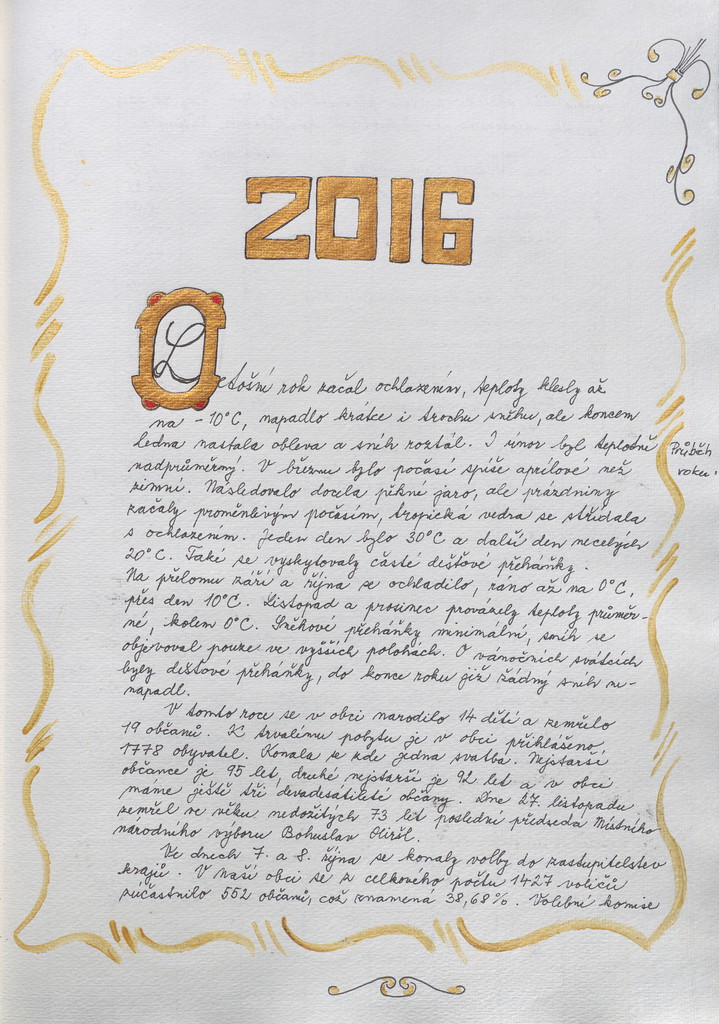 2016
Letošní rok začal ochlazením, teploty klesly až
na -10°C, napadlo krátce i trochu sněhu, ale koncem
ledna nastala obleva a sníh roztál. I únor byl teplotně
Průběh
roku.
nadprůměrný. V březnu bylo počasí spíše aprílové než
zimní. Následovalo docela pěkné jaro, ale prázdniny
začaly proměnlivým počasím, tropická vedra se střídala
s ochlazením. Jeden den bylo 30°C a další den necelých
20°C. Také se vyskytovaly časté dešťové přeháňky.
Na přelomu září a října se ochladilo, ráno až na 0°C,
přes den 10°C. Listopad a prosinec provázely teploty průměr-
né, kolem 0°C. Sněhové přeháňky minimální, sníh se
objevoval pouze ve vyšších polohách. O vánočních svátcích
byly dešťové přeháňky, do konce roku již žádný sníh ne-
napadl.
V tomto roce se v obci narodilo 14 dětí a zemřelo
19 občanů. K trvalému pobytu je v obci přihlášeno
1778 obyvatel. Konala se zde jedna svatba. Nejstarší
občance je 95 let, druhé nejstarší je 92 let a v obci
máme ještě tři devadesátileté občany. Dne 27. listopadu
zemřel ve věku nedožitých 73 let poslední předseda Místního
národního výboru Bohuslav
Ve dnech 7. a 8. října se konaly volby do zastupitelstev
krajů. V naší obci se z celkového počtu 1427 voličů
zúčastnilo 552 občanů, což znamená 38,68%. Volební komise